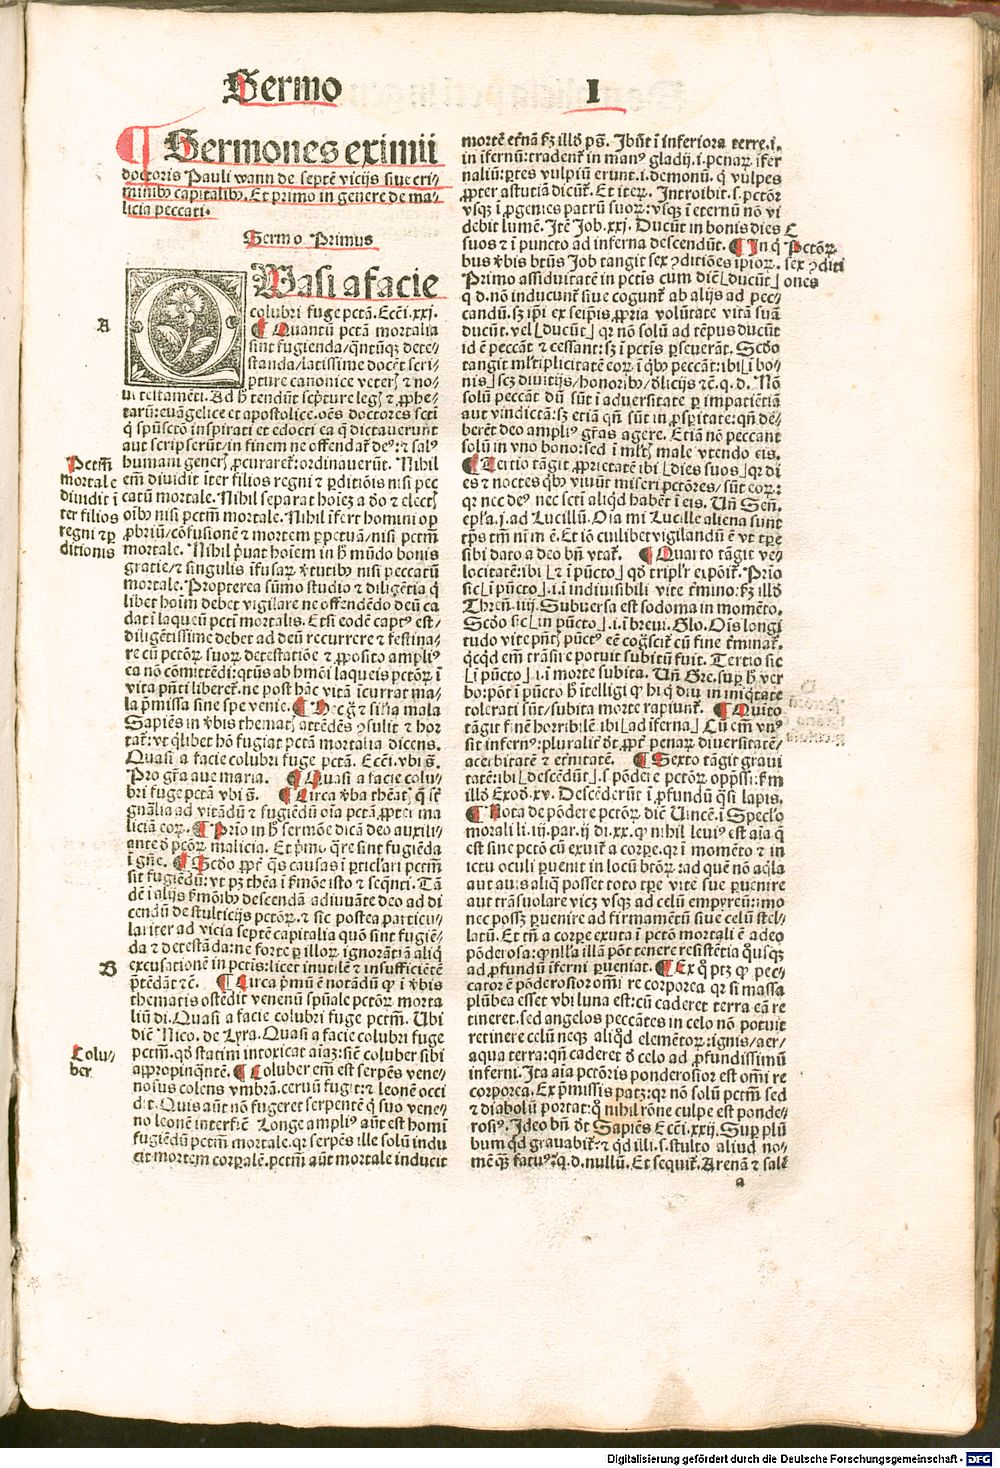 Sermo
I
Sermones eximii
doctoris Pauli wann de septē vicijs siue cri⸗
minibꝰ capitalibꝰ. Et primo in genere de ma⸗
licia peccati.
Sermo Primus
QUasi a facie
colubri fuge pctā. Ecci. xxj.
Quantū pctā mortalia
sint fugienda/qͣntūqꝫ dete⸗
standa/latissime docēt scri⸗
pture canonice veterꝭ ⁊ no⸗
ui testamēti. Ad hͦ tendūt scpture legꝭ ⁊ ꝓphe⸗
tarū: euāgelice et apostolice. oēs doctores scti
q̇ spūscto inspirati et edocti ea q̇ dictauerunt
aut scripserūt/in finem ne offendat̄ deꝰ: ⁊ salꝰ
humani generꝭ ꝓcuraret̄: ordinauerūt. Nihil
em̄ diuidit iter filios regni ⁊ ꝑditiōis nisi pec
catū mortale. Nihil separat hoiez a dō ⁊ electꝭ
oībꝰ nisi pctm̄ mortale. Nihil īfert homini op
ꝓbriū/cōfusionē ⁊ mortem ꝑpetuā/nisi pctm̄
mortale. Nihil pͥuat hoīem in hͦ mūdo bonis
gratie/⁊ singulis īfusaꝝ v̓tutibꝰ nisi peccatū
mortale. Propterea sūmo studio ⁊ diligētia q̇
libet hoīm debet vigilare ne offendēdo deū ca
dat ī laqueū pcti mortalis. Et si eodē captꝰ est/
diligētissime debet ad deū recurrere ⁊ festina⸗
re cū pctōꝝ suoꝝ detestatiōe ⁊ ꝓposito ampliꝰ
ea nō cōmittēdi: qͣtūs ab hmōi laqueis pctōꝝ ī
vita pn̄ti liberet̄. ne post hāc vitā īcurrat ma⸗
la pͥmissa sine spe venie. Hec ḡ ⁊ silia mala
Sapiēs in v̓bis thematꝭ attēdēs ꝯsulit ⁊ hor
tat̄: vt q̇libet hō fugiat pctā mortalia dicens.
Quasi a facie colubri fuge pctā. Ecci. vbi s̄.
Pro gr̄a aue maria. Quasi a facie colu⸗
bri fuge pctā vbi s̄. Circa v̓ba theatꝭ q̄ st̄
gn̄alia ad vitādū ⁊ fugēdū oīa pctā ꝓpter ma
liciā eoꝝ. Prio in hͦ sermōe dicā deo auxili⸗
ante ꝺ pctōꝝ malicia. Et pͥmo qͣre sint fugiēda
ī gn̄e. Scdo ꝓpt̄ q̄s causas ī pticl̄ari pctm̄
sit fugiēdū: vt pꝫ thēa ī s̓mōe isto ⁊ seqn̄ti. Tā
dē ī alijs s̓mōibꝰ descendā adiuuāte deo ad di
cendū de stulticijs pctōꝝ. ⁊ sic postea particu⸗
lariter ad vicia septē capitalia quō sint fugiē⸗
da ⁊ detestāda: ne forte ꝑ illoꝝ ignorātiā aliq̇
excusationē in pctis: licet inutilē ⁊ insufficiētē
pͥtēdāt ⁊c̄. Circa pͥmū ē notādū ꝙ ī v̓bis
thematis ostēdit venenū spūale pctōꝝ morta
liū di. Quasi a facie colubri fuge pctm̄. Ubi
diē Nico. de Lyra. Quasi a facie colubri fuge
pctm̄. qd̓ statim intoxicat aīaꝫ: sicut coluber sibi
appropinqͣntē. Coluber em̄ est serpēs vene⸗
nosus colens vmbrā. ceruū fugit: ⁊ leonē occi
dit. Quis aūt nō fugeret serpentē q̇ suo vene⸗
no leonē interficit Longe ampliꝰ aūt est homi
fugiēdū pctm̄ mortale. qꝛ serpēs ille solū indu
cit mortem corꝑalē. pctm̄ aūt mortale inducit
A
Pctm̄
mortale
diuidit ī
ter filios
regni ⁊ ꝑ
ditionis
B
Colu⸗
ber
mortē et̓nā s̓ꝫ illd̓ ps̄. Ibūt ī inferiora terre. i.
in īfernū: tradent̄ in manꝰ gladij. i. penaꝝ īfer
naliū: ꝑtes vulpiū erunt. i. demonū. q̇ vulpes
ꝓpter astutiā dicūt̄. Et iteꝝ. Introibit. s. pctōr
vsqꝫ ī ꝓgenies patrū suoꝝ: vsqꝫ ī eternū nō vi
debit lumē. Itē Job. xxj. Ducūt in bonis dies
suos ⁊ ī puncto ad inferna descendūt. In q̇
bus v̓bis btūs Job tangit sex ꝯditiōes ipīoꝝ.
Primo assiduitatē in pctis cum diē ducūt
q. d. nō inducunt̄ siue cogunt̄ ab alijs ad pec⸗
candū. sꝫ ip̄i ex seip̄is, ꝓpria volūtate vitā suā
ducūt. vel ducūt qꝛ nō solū ad tēpus ducūt
id ē peccāt ⁊ cessant: sꝫ ī pctis ꝑseuerāt. Scdo
tangit ml̓tiplicitatē eoꝝ ī qͥbꝰ peccāt: ibi ī bo⸗
nis scꝫ diuitijs/honoribꝰ/delicijs ⁊c̄. q. d. Nō
solū peccāt dū sūt ī aduersitate ꝑ impatiētiā
aut vindictā: sꝫ etiā qn̄ sūt in ꝓsperitate: qn̄ de⸗
berēt deo ampliꝰ gr̄as agere. Etiā nō peccant
solū in vno bono: sed ī ml̓tꝭ male vtendo eis.
Tertio tāgit ꝓprietatē ibi dies suos qꝛ di
es ⁊ noctes qͥbꝰ viuūt miseri pctōres/sūt eoꝝ:
qꝛ nec deꝰ nec scti aliqd̓ habēt ī eis. Un̄ Sen̄.
epl̄a. j. ad Lucillū. Oīa mi Lucille aliena sunt
tp̄s tm̄ nr̄m ē. Et iō cuilibet vigilandū ē vt tp̄e
sibi dato a deo bn̄ vtat̄. Quarto tāgit ve⸗
locitatē: ibi ⁊ ī pūcto qd̓ tripl̄r exponit̄. Prio
sic ī pūcto. i. ī indiuisibili vite t̓mino: s̓ꝫ illd̓
Thren̄. iiij. Subuersa est sodoma in momēto.
Scdo sic in pūcto. i. ī breui. Glo. Oīs longi
tudo vite pn̄tꝭ pūctꝰ eē cog̓scit̄ cū fine t̓minat̄.
qͥcqd̓ em̄ trāsire potuit subitū fuit. Tertio sic
ī pūcto. i. ī morte subita. Un̄ Gre. suꝑ hͦ ver
bo: pōt ī pūcto hͦ ītelligi ꝙ hi q̇ diu in iniq̇tate
tolerati sūt/subita morte rapiunt̄. Quīto
tāgit finē horribilē ibi ad īferna Cū em̄ vnꝰ
sit infernꝰ: pluralit̓ dr̄ ꝓpt̄ penaꝝ diuersitatē/
acerbitatē ⁊ et̓nitatē. Sexto tāgit graui
tatē: ibi descēdūt. s. pōdere pctōꝝ oppssi: s̓m
illd̓ Exod̓. xv. Descēderūt ī ꝓfundū qͣsi lapis.
Nota de pōdere pctōꝝ diē Uincē. ī Specl̓o
morali li. iij. par. ij di. xx. ꝙ nihil leuiꝰ est aīa q̄
est sine pctō cū exiuit a corꝑe. qꝛ ī momēto ⁊ in
ictu oculi ꝑuenit in locū btōꝝ: ad quē nō aqͥla
aut auis aliq̄ posset toto tp̄e vite sue ꝑuenire
aut trāsuolare vicꝫ vsqꝫ ad celū empyreū: imo
nec possꝫ ꝑuenire ad firmamētū siue celū stel⸗
latū. Et tn̄ a corꝑe exuta ī pctō mortali ē adeo
pōderosa: ꝙ nl̄la illā pōt tenere resistētia q̇usqꝫ
ad ꝓfundū īferni ꝑueniat. Ex q̇ ptꝫ ꝙ pec⸗
cator ē pōderosior om̄i re corporea qꝛ si massa
plūbea esset vbi luna est: cū caderet terra eā re
tineret. sed angelos peccātes in celo nō potuit
retinere celū neqꝫ aliqd̓ elemētoꝝ: ignis/aer/
aqua terra: qn̄ caderēt ꝺ celo ad ꝓfundissimū
inferni. Ita aīa pctōris ponderosior est om̄i re
corporea. Ex pͥmissis patꝫ: qꝛ nō solū pctm̄ sed
⁊ diabolū portat: q̇ nihil rōne culpe est ponde⸗
rosiꝰ. Ideo bn̄ dr̄ Sapiēs Ecci. xxij. Suꝑ plū
bum qd̓ grauabit̄: ⁊ qd̓ illi. s. stulto aliud no⸗
mē qͣꝫ fatuꝰ: q. d. nullū. Et sequit̄. Arenā ⁊ salē
C
Pctōꝝ
sex ꝯditi
ones
a
Digitalisierung gefördert durch die Deutsche Forschungsgemeinschaft - DFG